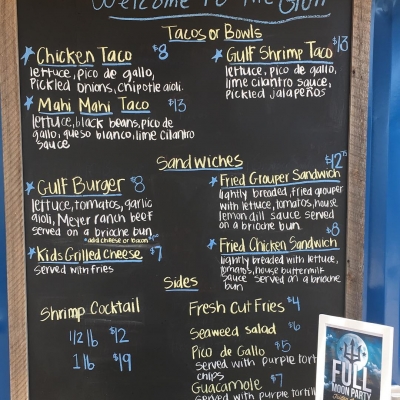 Welcome to the
Tacos or Bowls
Chicken Taco $8
lettuce, pico de gallo,
pickled onions, chipotle aioli.
Mahi Mahi Taco $13
lettuce, black beans, pico de
gallo, queso blanco, lime cilantro
sauce
Gulf Shrimp Taco $13
lettuce, pico de gallo,
lime cilantro sauce,
pickled jalapeños
Sandwiches
Gulf Burger $8
lettuce, tomatoes, garlic
aioli, Meyer ranch beef
served on a brioche bun
*add cheese or bacon
Kids Grilled Cheese $7
served with fries
$12
Fried Grouper Sandwich
lightly breaded, fried grouper
with lettuce, tomatoes, house
lemon dill sauce served
on a brioche bun
$8
Fried Chicken Sandwich
lightly breaded with lettuce,
tomatoes, house buttermilk
sauce served on a brioche
bun
Sides
Shrimp Cocktail
1/2 lb $12
1 lb $19
Fresh Cut Fries $4
Seaweed Salad $6
Pico de Gallo $5
served with purple tort
chips
Guacamole $7
served with purple tortil
FULL
MOON PARTY